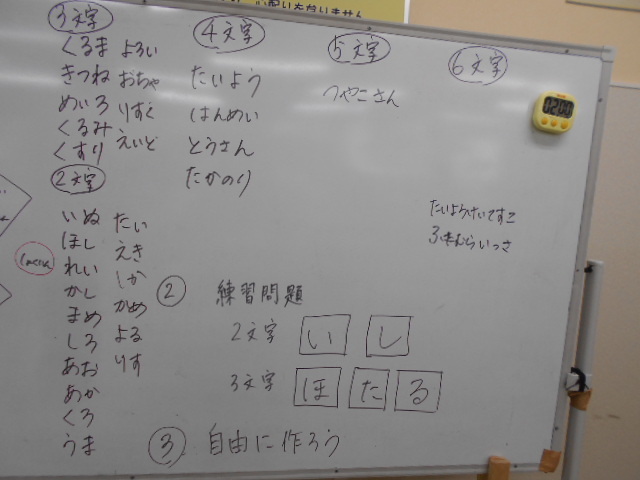 3文字
くるま よろい
きつね おちゃ
めいろ りすく
くるみ えいと
くすり
2文字
いぬ たい
ほし えき
れい しか
かし かめ
まめ よる
しろ りす
あお
あか
くろ
うま
4文字
たいよう
はんめい
とうさん
たかのり
5文字
つやこさん
6文字
② 練習問題
2文字 い し
3文字 ほ た る
③ 自由に作ろう